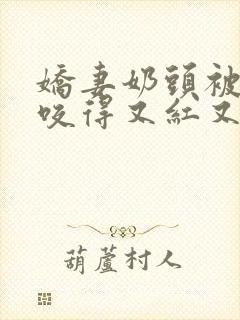 嬌妻奶頭被
咬得又紅又
葫蘆村人